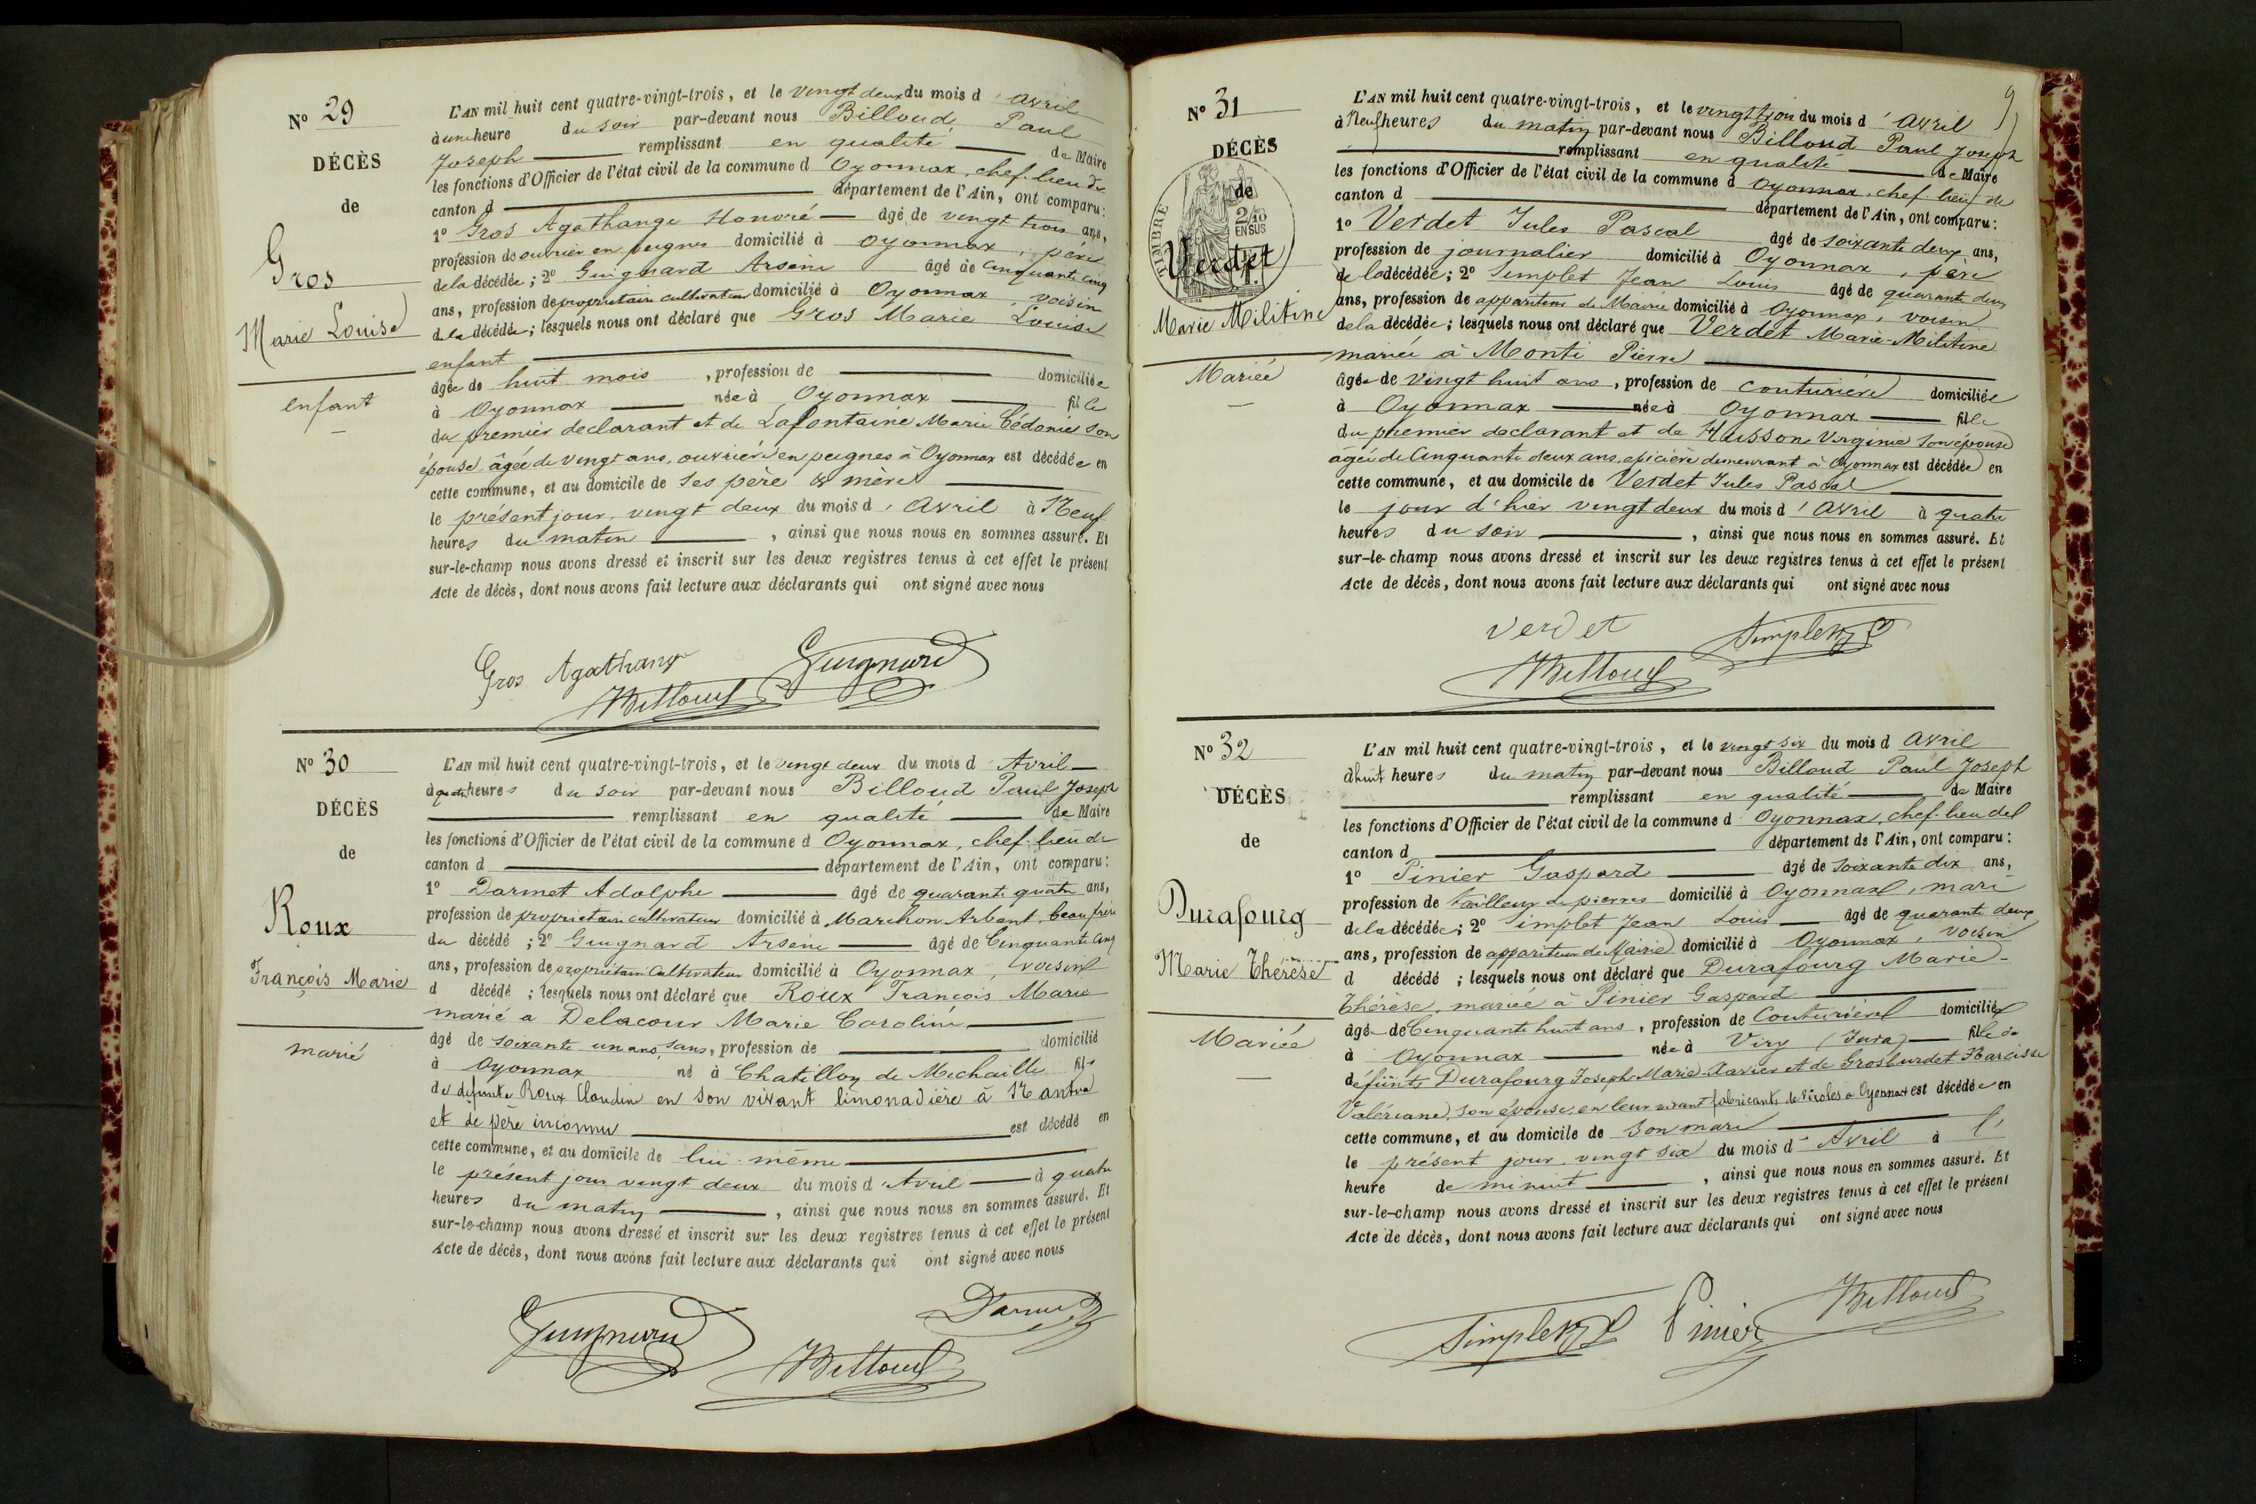 N° 29
DÉCÈS
de
Gros
Marie Louise
enfant
L'AN mil huit cent quatre-vingt-trois, et le vingt deux du mois d'avril
à une heure du soir par-devant nous Billoud Paul
Joseph remplissant en qualité de Maire
les fonctions d'Officier de l'état civil de la commune d Oyonnax, chef-lieu de
canton d département de l'Ain, ont comparu:
1° Gros Agathange Honoré âgé de vingt trois ans,
profession de ouvrier en peignes domicilié à Oyonnax, père
de la décédée; 2° Guignard Arsène âgé de cinquante cinq
ans, profession de propriétaire cultivateur domicilié à Oyonnax, voisin
de la décédée; lesquels nous ont déclaré que Gros Marie Louise
enfant
âgée de huit mois, profession de domiciliée
à Oyonnax née à Oyonnax fille
du premier declarant et de Lafontaine Marie Cédonie son
épouse âgée de vingt ans, ouvrière en peignes à Oyonnax est décédée en
cette commune, et au domicile de ses père & mère
le présent jour vingt deux du mois d'avril à Neuf
heures du matin, ainsi que nous nous en sommes assuré. Et
sur-le-champ nous avons dressé et inscrit sur les deux registres tenus à cet effet le présent
Acte de décès, dont nous avons fait lecture aux déclarants qui ont signé avec nous
Gros Agathange Guignard
Billoud
N° 30
DÉCÈS
de
Roux
François Marie
marié
L'AN mil huit cent quatre-vingt-trois, et le vingt deux du mois d Avril
à quatre heures du soir par-devant nous Billoud Paul Joseph
remplissant en qualité de Maire
les fonctions d'Officier de l'état civil de la commune d Oyonnax, chef-lieu de
canton d département de l'Ain, ont comparu:
1° Darmet Adolphe âgé de quarante quatre ans,
profession de propriétaire cultivateur domicilié à Marchon Arbent, beau frère
du décédé; 2° Guignard Arsène âgé de Cinquante cinq
ans, profession de propriétaire Cultivateur domicilié à Oyonnax, voisin
d décédé; lesquels nous ont déclaré que Roux François Marie
marié a Delacour Marie Caroline
âgé de soixante un ans, sans, profession de domicilié
à Oyonnax né à Chatillon de Michaille fils
de defunte Roux Claudine en son vivant limonadière à Nantua
et de père inconnu est décédé en
cette commune, et au domicile de lui-même
le présent jour vingt deux du mois d'Avril à quatre
heures du matin, ainsi que nous nous en sommes assuré. Et
sur-le-champ nous avons dressé et inscrit sur les deux registres tenus à cet effet le présent
Acte de décès, dont nous avons fait lecture aux déclarants qui ont signé avec nous
Guignard Billoud Darmet
9
N° 31
DÉCÈS
de
TIMBRE
2/10
EN SUS
Verdet
Marie Militine
Mariée
L'AN mil huit cent quatre-vingt-trois, et le vingt trois du mois d'avril
à Neuf heures du matin par-devant nous Billoud Paul Joseph
remplissant en qualité de Maire
les fonctions d'Officier de l'état civil de la commune d Oyonnax, chef-lieu de
canton d département de l'Ain, ont comparu:
1° Verdet Jules Pascal âgé de soixante deux ans,
profession de journalier domicilié à Oyonnax, père
de la décédée; 2° Simplet Jean Louis âgé de quarante deux
ans, profession de appariteur de Mairie domicilié à Oyonnax, voisin
de la décédée; lesquels nous ont déclaré que Verdet Marie-Militine
mariée à Monti Pierre
âgée de vingt huit ans, profession de couturière domiciliée
à Oyonnax née à Oyonnax fille
du premier declarant et de Husson Virginie son épouse
agée de Cinquante deux ans, epicière demeurant à Oyonnax est décédée en
cette commune, et au domicile de Verdet Jules Pascal
le jour d'hier vingt deux du mois d'Avril à quatre
heures du soir, ainsi que nous nous en sommes assuré. Et
sur-le-champ nous avons dressé et inscrit sur les deux registres tenus à cet effet le présent
Acte de décès, dont nous avons fait lecture aux déclarants qui ont signé avec nous
Verdet Simplet
Billoud
N° 32
DÉCÈS
de
Durafourg
Marie Thérèse
Mariée
L'AN mil huit cent quatre-vingt-trois, et le vingt six du mois d Avril
à huit heures du matin par-devant nous Billoud Paul Joseph
remplissant en qualité de Maire
les fonctions d'Officier de l'état civil de la commune d Oyonnax, chef-lieu de
canton d département de l'Ain, ont comparu:
1° Pinier Gaspard âgé de soixante dix ans,
profession de tailleur de pierres domicilié à Oyonnax, mari
de la décédée; 2° Simplet Jean Louis âgé de quarante deux
ans, profession de appariteur de Mairie domicilié à Oyonnax, voisin
d décédé; lesquels nous ont déclaré que Durafourg Marie-
Thérèse, mariée à Pinier Gaspard
âgée de Cinquante huit ans, profession de Couturière domiciliée
à Oyonnax née à Viry (Jura) fille de
défunts Durafourg Joseph Marie-Xavier et de Grosburdet Narcisse
Valériane, son épouse, en leur vivant fabricants de à Oyonnax est décédée en
cette commune, et au domicile de son mari
le présent jour vingt six du mois d'Avril à l'
heure de minuit, ainsi que nous nous en sommes assuré. Et
sur-le-champ nous avons dressé et inscrit sur les deux registres tenus à cet effet le présent
Acte de décès, dont nous avons fait lecture aux déclarants qui ont signé avec nous
Simplet Pinier Billoud